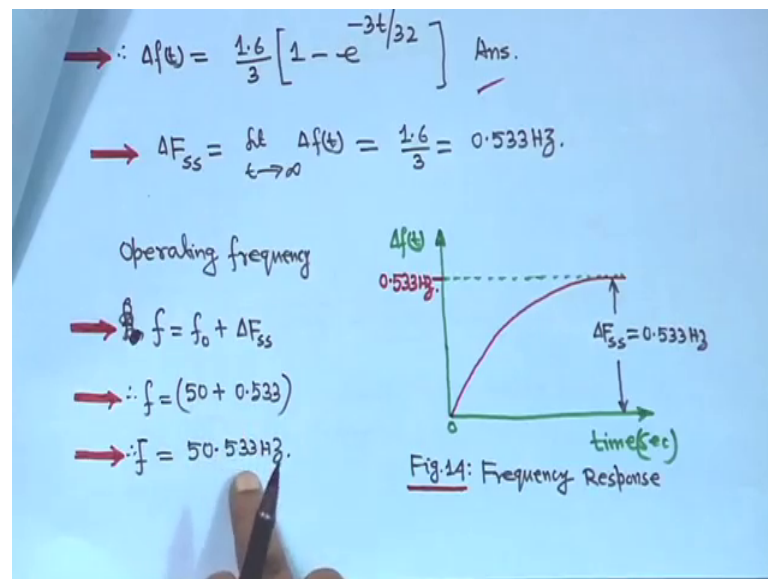 ∴ Δf(t) = 1.6/3 [1 - e^{-3t/32}] Ans.
ΔF_ss = lt t→∞ Δf(t) = 1.6/3 = 0.533 HZ.
Operating frequency
f = f₀ + ΔF_ss
∴ f = (50 + 0.533)
∴ f = 50.533 HZ.
Δf(t)
0.533HZ.
ΔF_ss = 0.533 HZ
0
time(sec)
Fig.14: Frequency Response